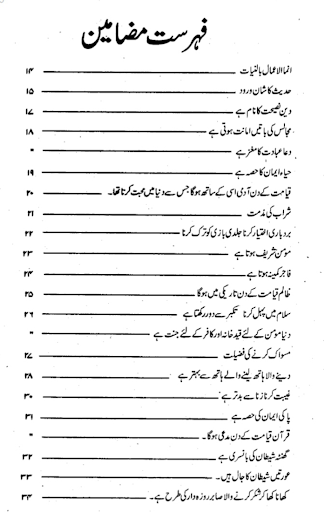 فہرست مضامین
انما الاعمال بالنیات ۱۴
حدیث کا شان ورود ۱۵
دین نصیحت کا نام ہے ۱۷
مجالس کی باتیں امانت ہوتی ہے ۱۸
دعا عبادت کا مغز ہے "
حیاء ایمان کا حصہ ہے ۱۹
قیامت کے دن آدمی اسی کے ساتھ ہوگا جس سے دنیا میں محبت کرتا تھا۔ ۲۰
شراب کی مذمت ۲۱
بردباری اختیار کرنا جلدی بازی کو ترک کرنا ۲۲
مؤمن شریف ہوتا ہے ۲۳
فاجر کمینہ ہوتا ہے ۲۴
ظالم قیامت کے دن تاریکی میں ہوگا ۲۵
سلام میں پہل کرنا تکبر سے دور رکھتا ہے ۲۶
دنیا مؤمن کے لئے قید خانہ اور کافر کے لئے جنت ہے "
مسواک کرنے کی فضیلت ۲۷
دینے والا ہاتھ لینے والے ہاتھ سے بہتر ہے ۲۸
غیبت کرنا زنا سے بدتر ہے ۳۰
پاکی ایمان کی حصہ ہے ۳۱
قرآن قیامت کے دن مدعی ہوگا۔ "
گھنٹہ شیطان کی بانسری ہے ۳۲
عورتیں شیطان کا جال ہیں۔ ۳۳
کھانا کھا کر شکر کرنے والا صابر روزہ دار کی طرح ہے۔ ۳۴